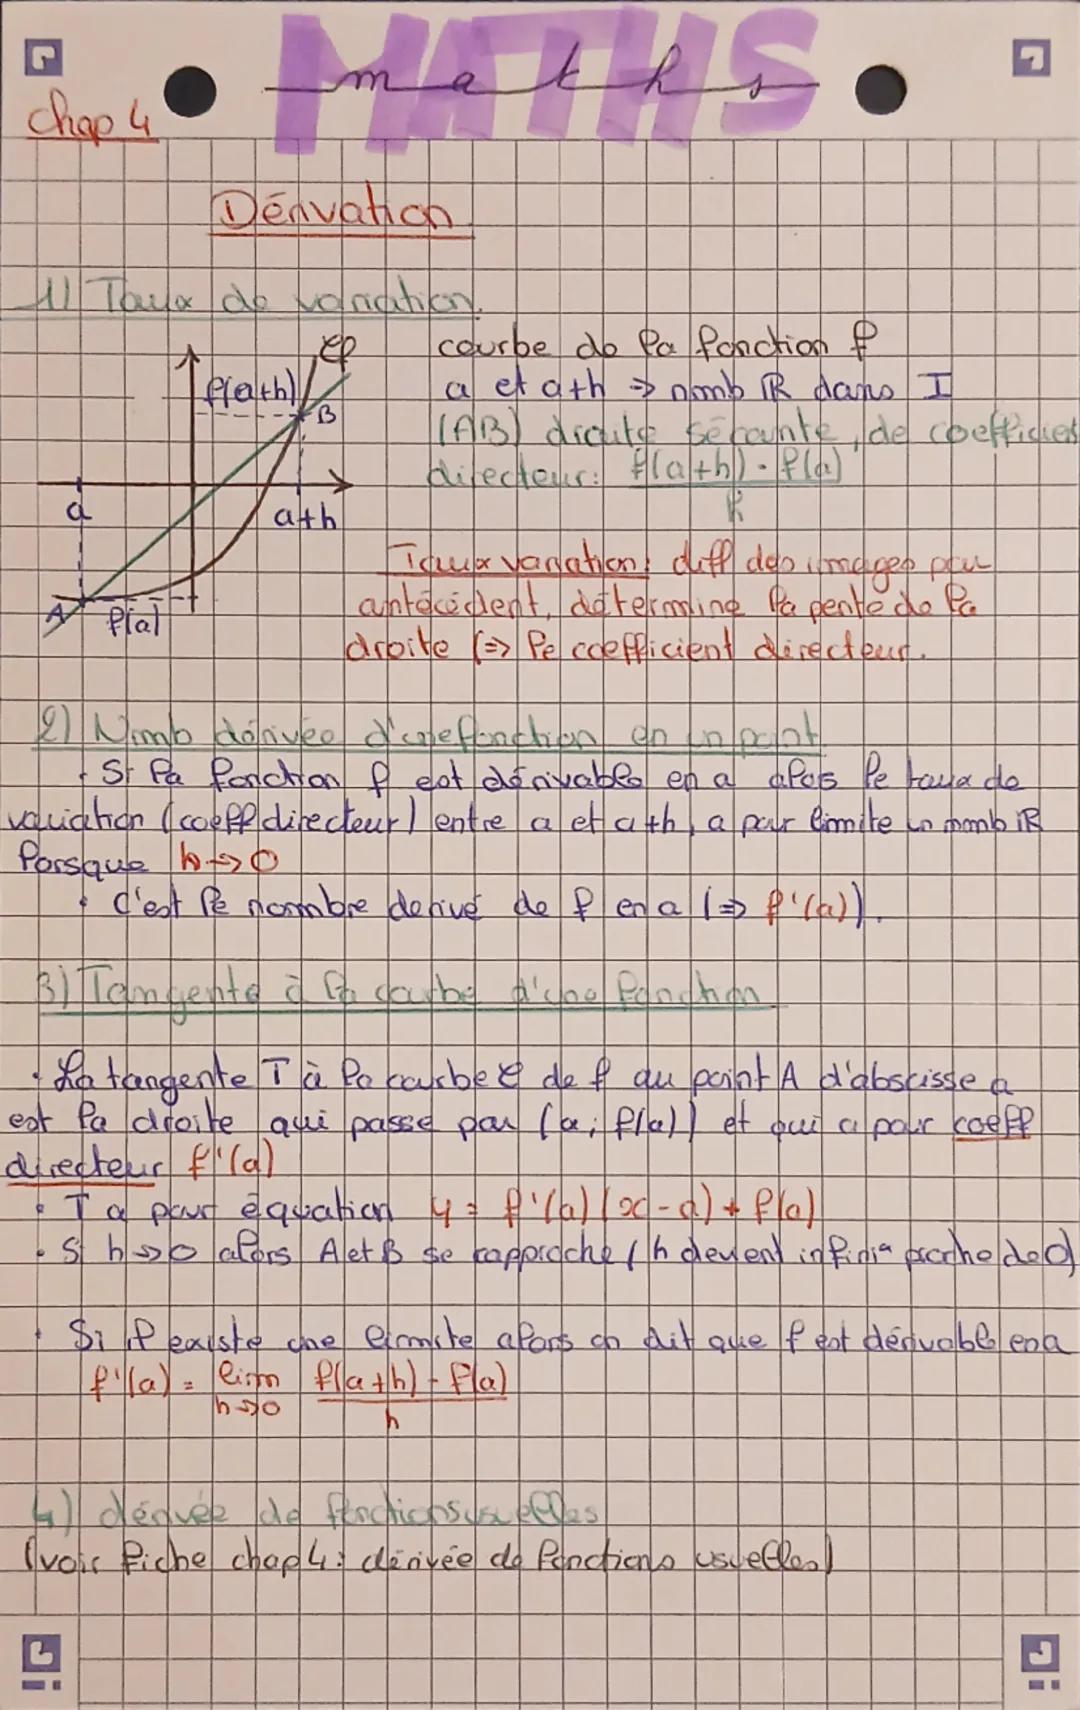 MATHS
maths
chap 4
Dérivation
1) Taux de variation.
courbe de la fonction f
a et a+h => nomb ℝ dans I
(AB) droite sécante, de coefficient
directeur: f(a+h) - f(a)
h
f(a+h)
Cf
B
a
a+h
A
f(a)
Taux variation: diff des images par
antécédent, détermine la pente de la
droite (=> le coefficient directeur.
2) Nomb dérivée d'une fonction en un point
Si la fonction f est dérivable en a alors le taux de
variation (coeff directeur) entre a et a+h, a pour limite un nomb ℝ
lorsque h→0
• c'est le nombre derivé de f en a (=> f'(a)).
3) Tangente à la courbe d'une fonction
• La tangente T à la courbe C de f au point A d'abscisse a
est la droite qui passe par (a; f(a)) et qui a pour coeff
directeur f'(a)
• T a pour équation y = f'(a)(x-a) + f(a)
• Si h→0 alors A et B se rapproche (h devient infini proche de 0)
• Si il existe une limite alors on dit que f est dérivable en a
f'(a) = lim f(a+h) - f(a)
h→0 h
4) dérivée de fonctions usuelles
(voir fiche chap 4: dérivée de fonctions usuelles)